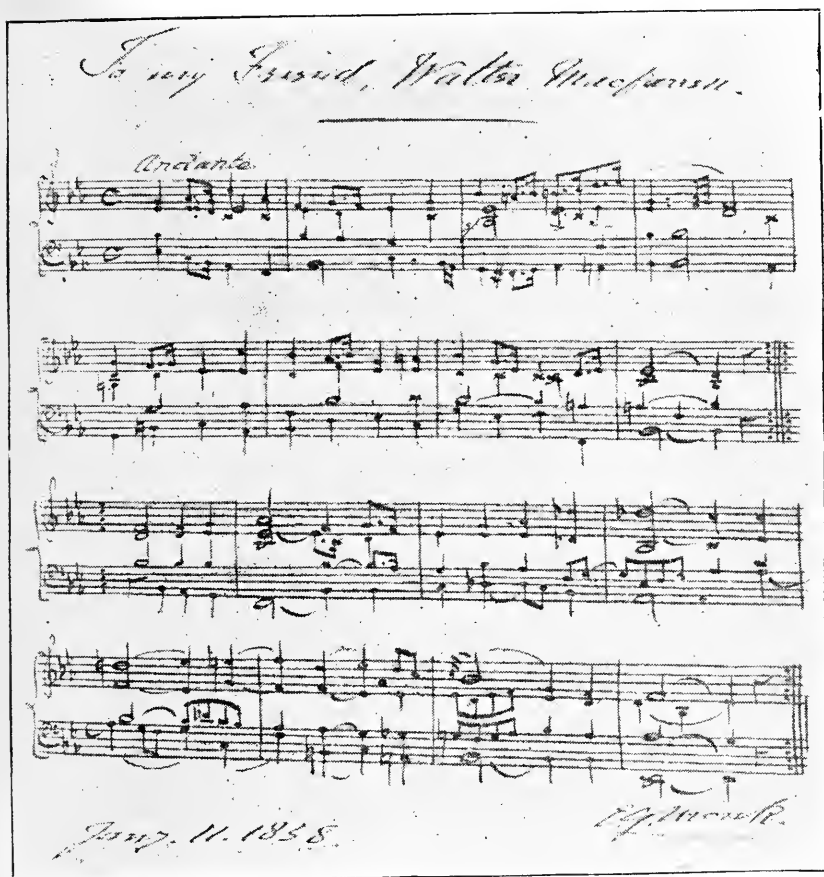 To my Friend, Walter Macfarren.
Andante.
Jany. 11. 1858.
E.G. Monk.